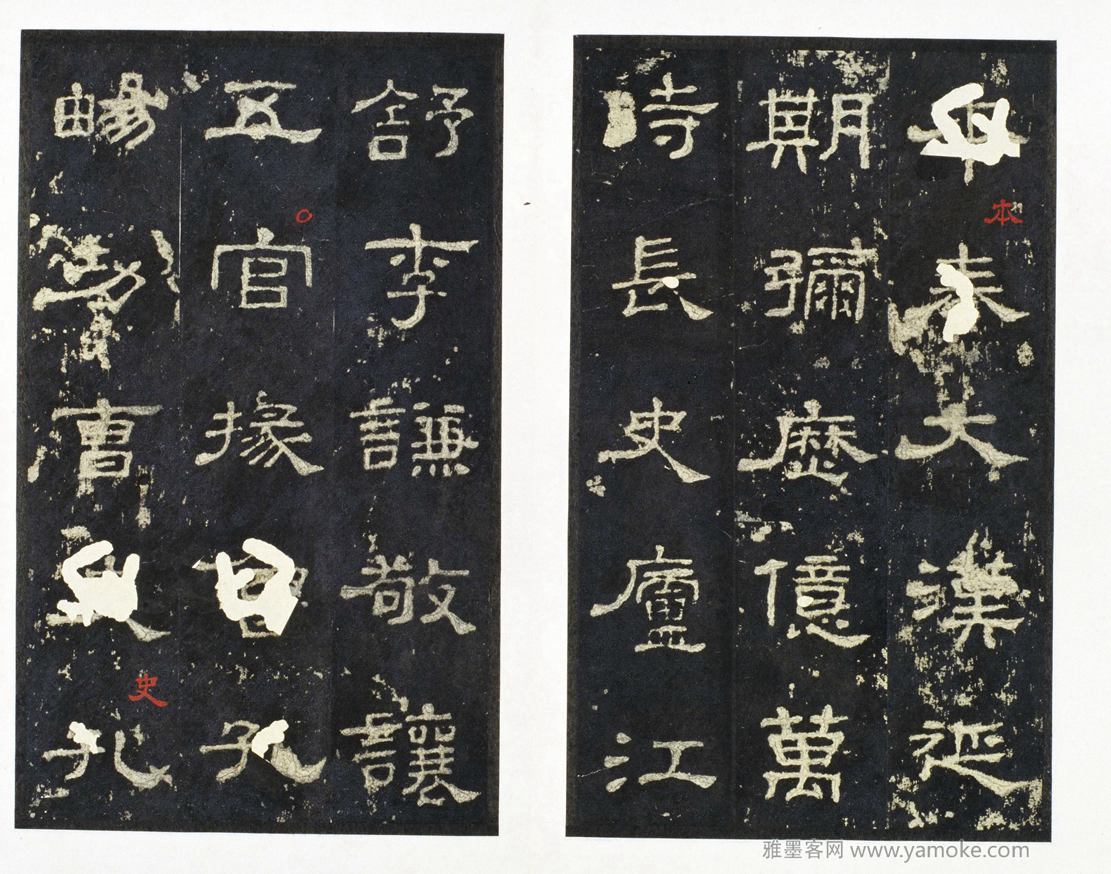 大漢延
期彌歷億萬
時長史廬江
舒李謙敬讓
五官掾魯孔
畼功曹史孔
本
史
雅墨客网 www.yamoke.com